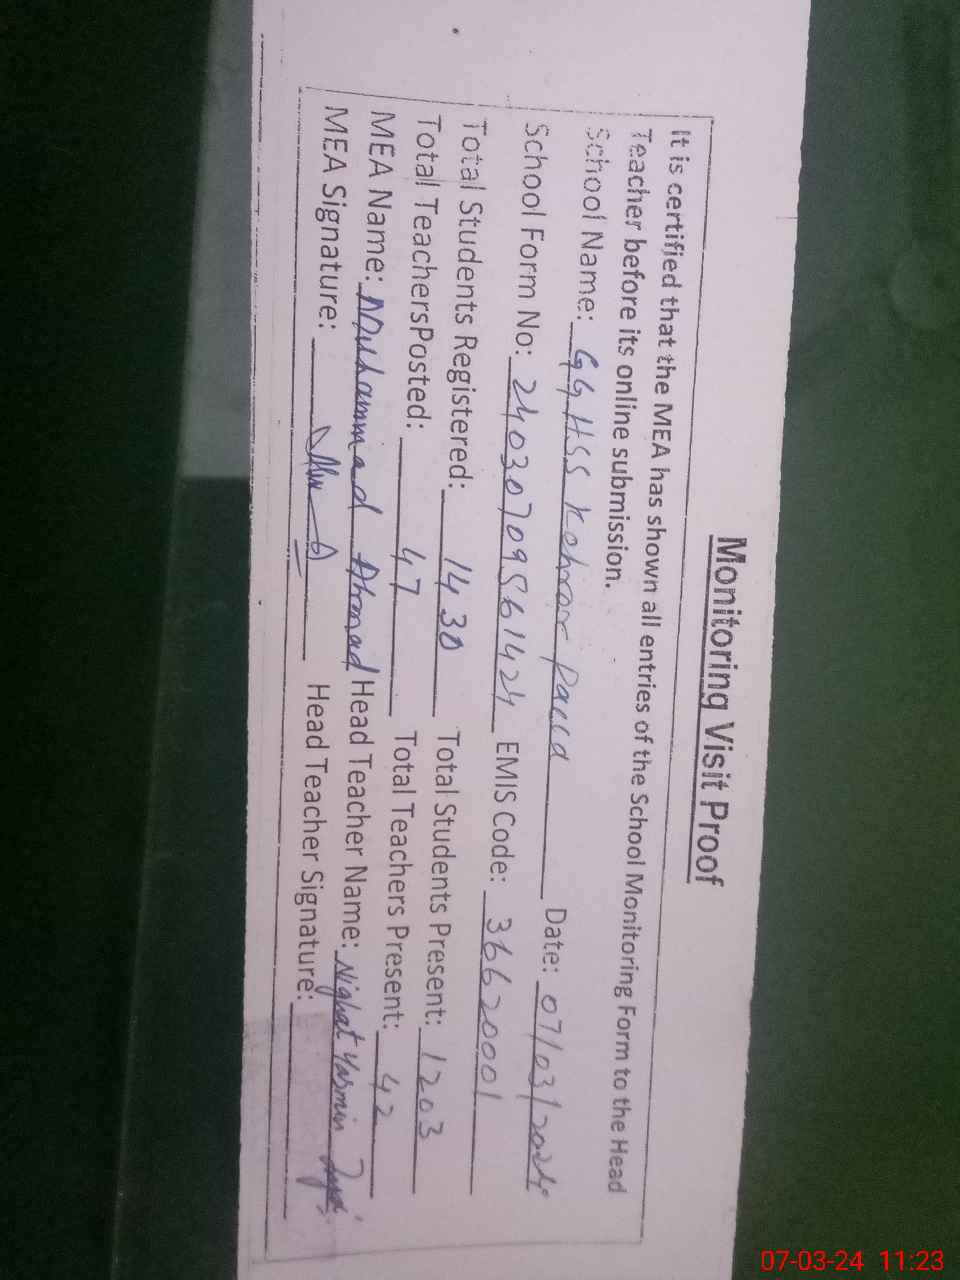 Monitoring Visit Proof
It is certified that the MEA has shown all entries of the School Monitoring Form to the Head
Teacher before its online submission.
School Name: GGHSS Kehror Pacca Date: 07/03/2024
School Form No: 24030709561424 EMIS Code: 36620001
Total Students Registered: 1430 Total Students Present: 1203
Total TeachersPosted: 47 Total Teachers Present: 42
MEA Name: Muhammad Ahmad Head Teacher Name: Nighat Yasmin
MEA Signature: Head Teacher Signature:
07-03-24 11:23